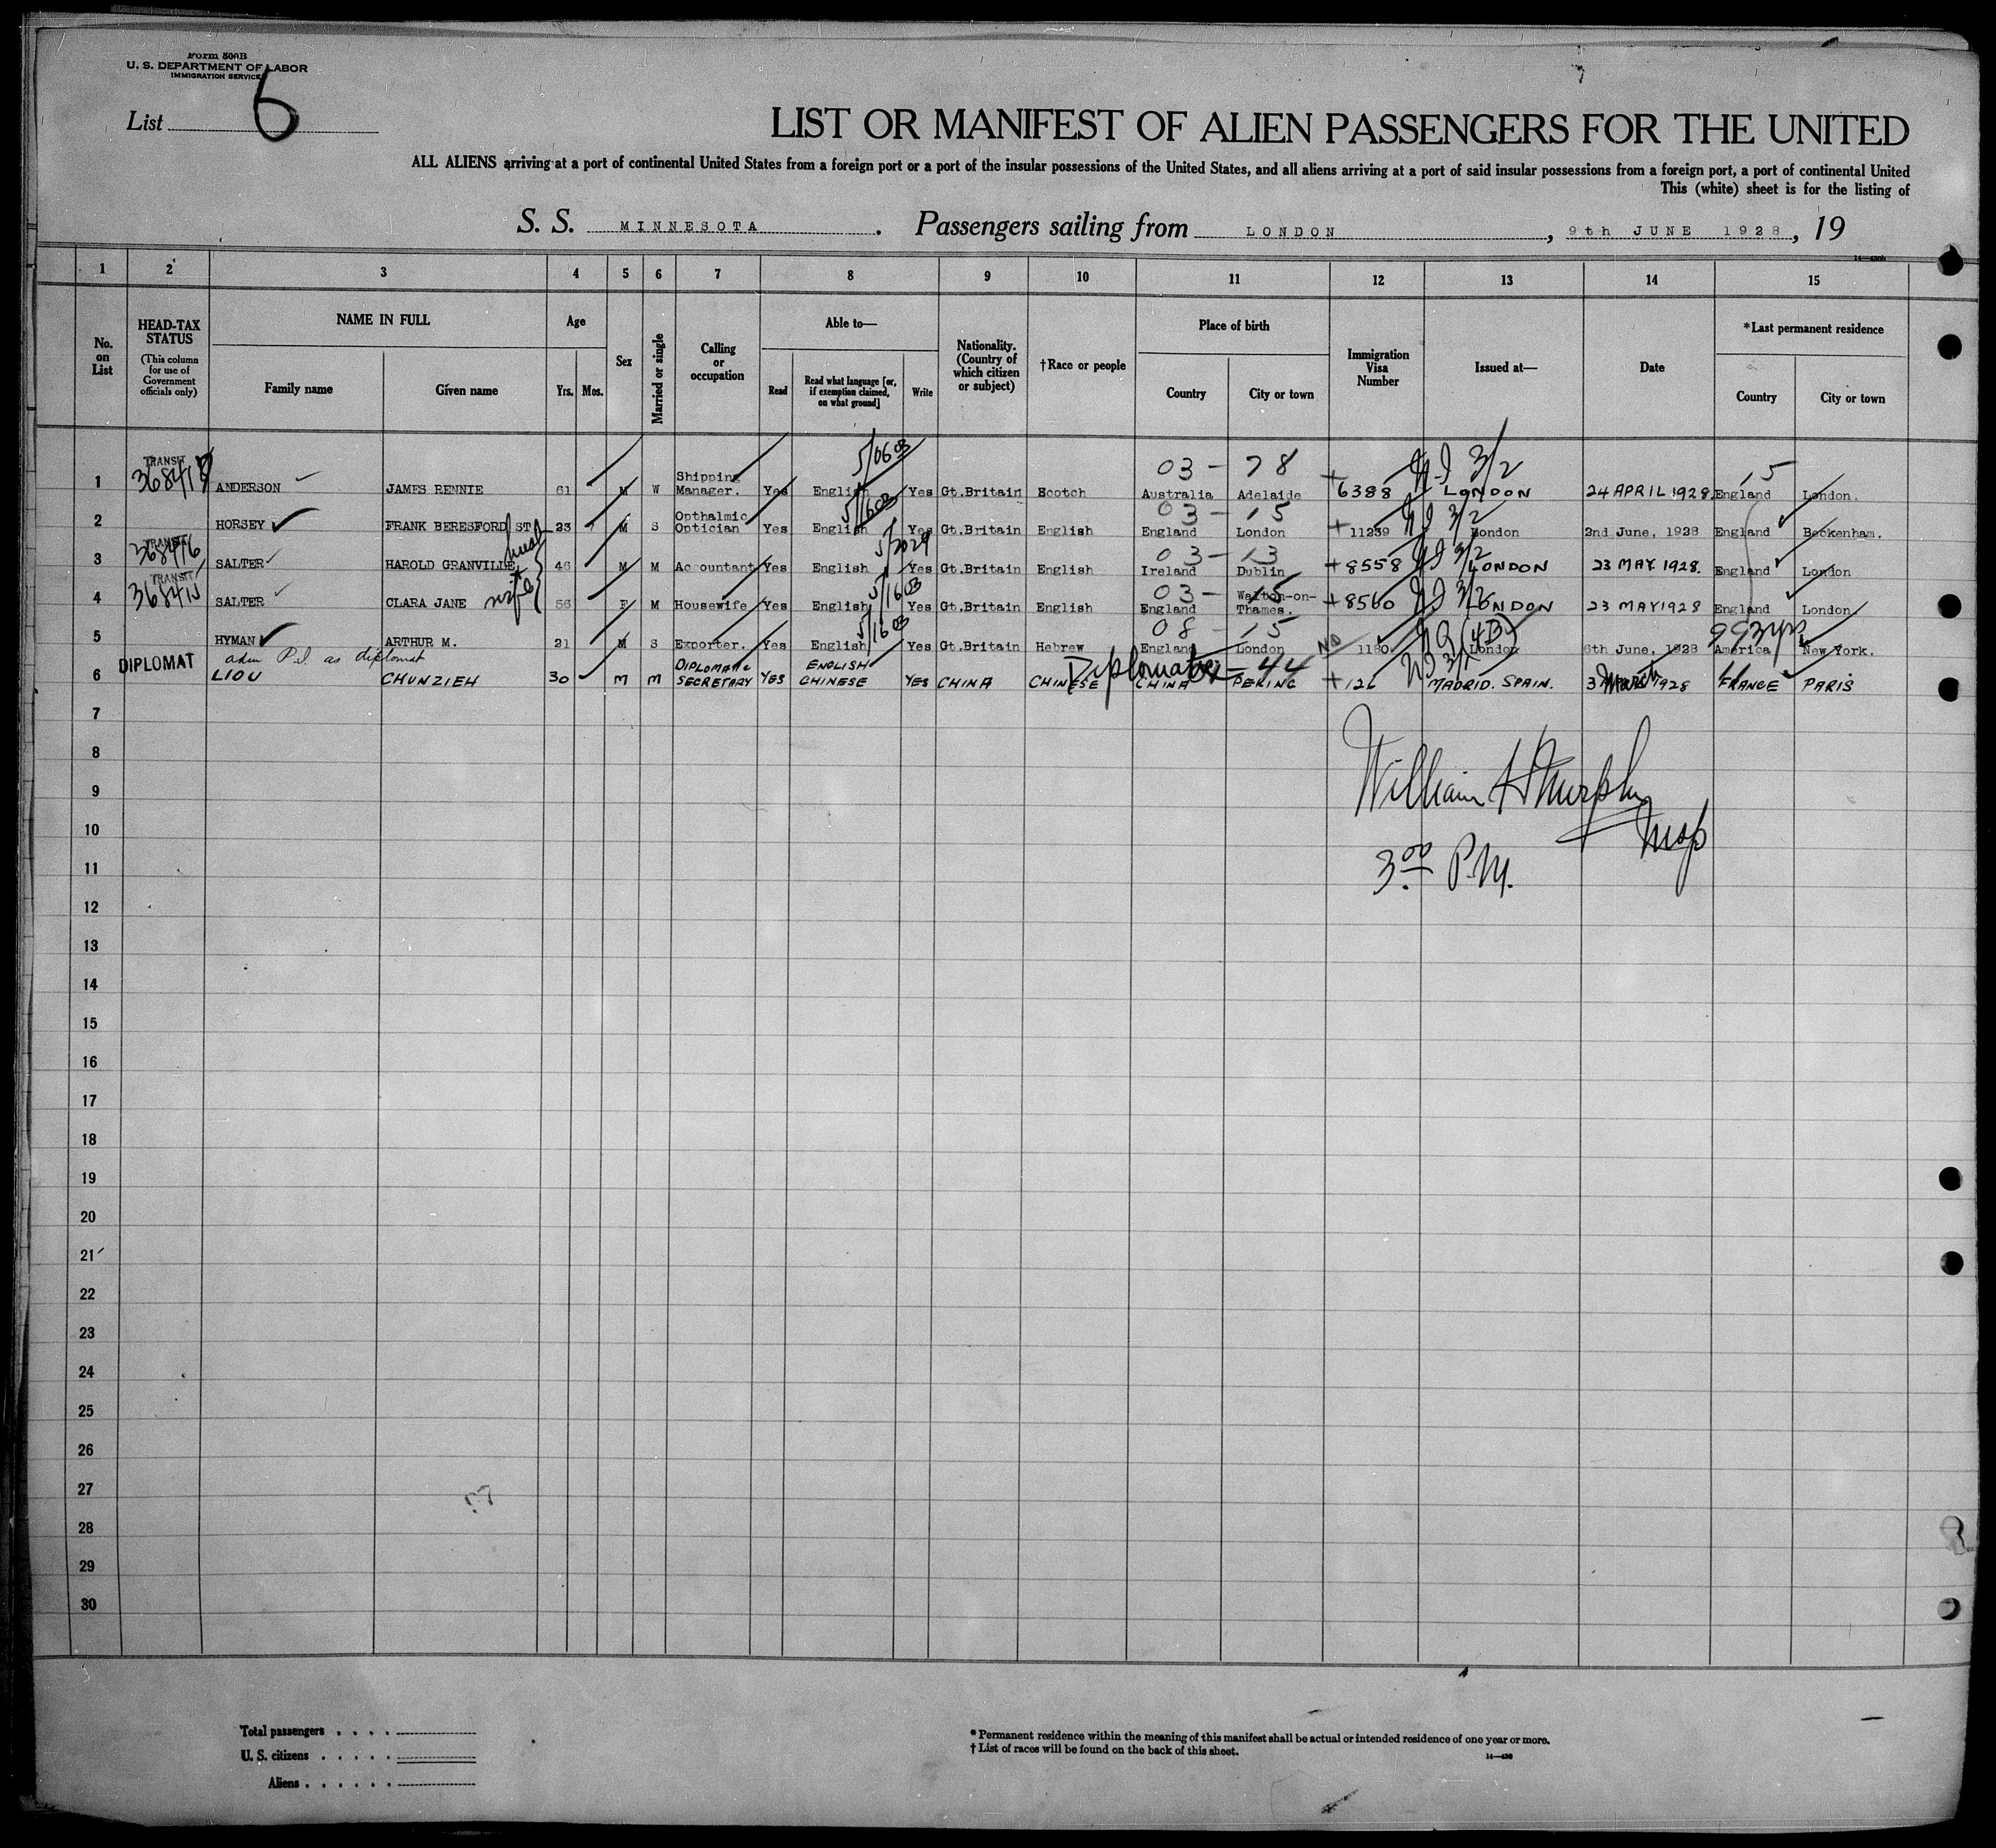 Form 500B
U. S. DEPARTMENT OF LABOR
IMMIGRATION SERVICE
List 6
LIST OR MANIFEST OF ALIEN PASSENGERS FOR THE UNITED
ALL ALIENS arriving at a port of continental United States from a foreign port or a port of the insular possessions of the United States, and all aliens arriving at a port of said insular possessions from a foreign port, a port of continental United
This (white) sheet is for the listing of
S. S. MINNESOTA. Passengers sailing from LONDON, 9th JUNE 1928, 19
14—430b
1 2 3 4 5 6 7 8 9 10 11 12 13 14 15
No. on List
HEAD-TAX STATUS (This column for use of Government officials only)
NAME IN FULL
Family name Given name
Age
Yrs. Mos.
Sex
Married or single
Calling or occupation
Able to—
Read Read what language [or, if exemption claimed, on what ground] Write
Nationality. (Country of which citizen or subject)
†Race or people
Place of birth
Country City or town
Immigration Visa Number
Issued at—
Date
*Last permanent residence
Country City or town
TRANSIT 5/1060B 03 - 78 3/2 15
1 ANDERSON JAMES RENNIE 61 M W Shipping Manager. Yes English Yes Gt.Britain Scotch Australia Adelaide 6388 LONDON 24 APRIL 1928. England London.
03 - 15 3/2
2 HORSEY FRANK BERESFORD ST 23 7 M S Opthalmic Optician Yes English Yes Gt.Britain English England London 11239 London 2nd June, 1928 England Beckenham.
TRANSIT 368416 husb 03 - 13 3/2
3 SALTER HAROLD GRANVILLE 46 M M Accountant Yes English Yes Gt.Britain English Ireland Dublin 8558 LONDON 23 MAY 1928. England London
TRANSIT 368415 wife 03 - 15 3/2
4 SALTER CLARA JANE 56 F M Housewife Yes English Yes Gt.Britain English England Walton-on-Thames. 8560 LONDON 23 MAY 1928 England London
08 - 15 NO (4B) 99 3yrs
5 HYMAN ARTHUR M. 21 M S Exporter. Yes English Yes Gt.Britain Hebrew England London 1180 London 6th June, 1928 America New York.
DIPLOMAT adm P.I. as diplomat Diplomatic - 44
6 LIOU CHUNZIEH 30 M M DIPLOMATIC SECRETARY YES ENGLISH CHINESE YES CHINA CHINESE CHINA PEKING 126 MADRID. SPAIN. 3 March 1928 FRANCE PARIS
7
8
William H Murphy
9
10
Insp
11
3.00 P.M.
12
13
14
15
16
17
18
19
20
21
22
23
24
25
26
27
28
29
30
Total passengers . . . .
U. S. citizens . . . . .
Aliens . . . . . .
* Permanent residence within the meaning of this manifest shall be actual or intended residence of one year or more.
† List of races will be found on the back of this sheet.
14—430